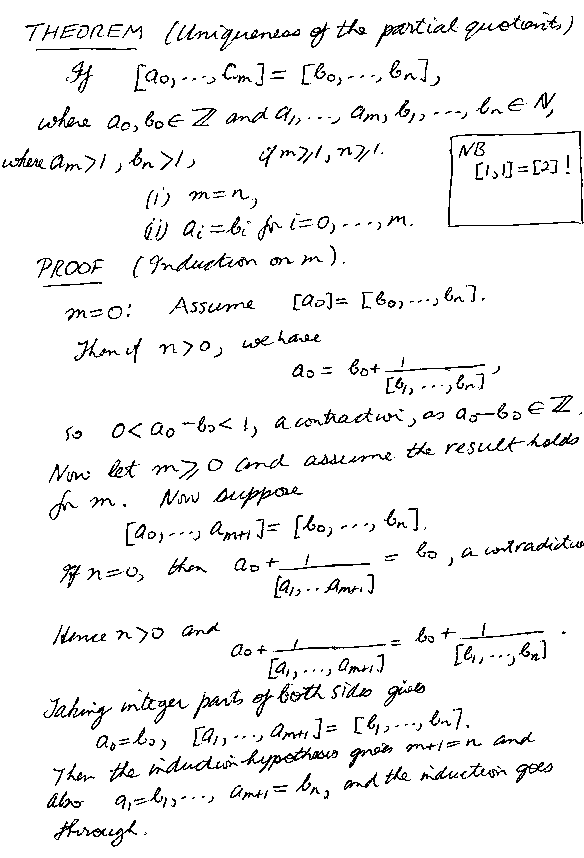 THEOREM (Uniqueness of the partial quotients)
If [a₀, ..., Cₘ] = [b₀, ..., bₙ],
where a₀, b₀ ∈ ℤ and a₁, ..., aₘ, b₁, ..., bₙ ∈ N,
where aₘ>1, bₙ>1, if m⩾1, n⩾1.
NB
[1,1]=[2]!
(i) m=n,
(ii) aᵢ=bᵢ for i=0, ..., m.
PROOF (Induction on m).
m=0: Assume [a₀] = [b₀, ..., bₙ].
Then if n>0, we have
a₀ = b₀ + 1/[b₁, ..., bₙ],
so 0<a₀-b₀<1, a contradiction, as a₀-b₀ ∈ ℤ.
Now let m⩾0 and assume the result holds
for m. Now suppose
[a₀, ..., aₘ₊₁] = [b₀, ..., bₙ].
If n=0, then a₀ + 1/[a₁, .. aₘ₊₁] = b₀, a contradictio
Hence n>0 and
a₀ + 1/[a₁, ..., aₘ₊₁] = b₀ + 1/[b₁, ..., bₙ].
Taking integer parts of both sides gives
a₀=b₀, [a₁, ..., aₘ₊₁] = [b₁, ..., bₙ].
Then the induction hypothesis gives m+1=n and
also a₁=b₁, ..., aₘ₊₁=bₙ, and the induction goes
through.